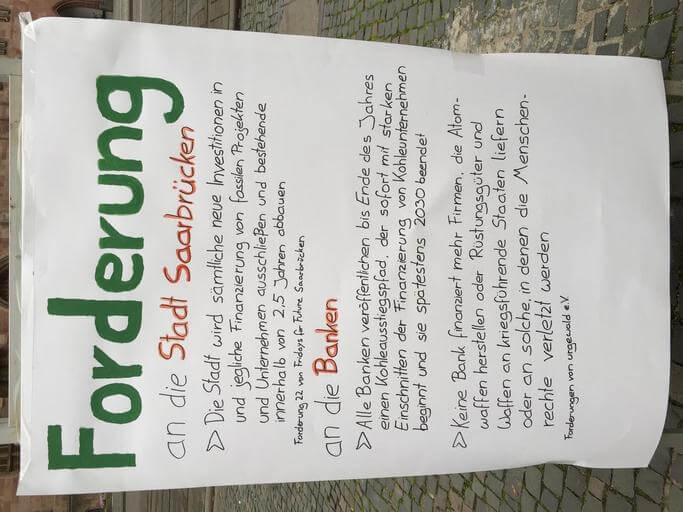 Forderung
an die Stadt Saarbrücken
> Die Stadt wird sämtliche neue Investitionen in
und jegliche Finanzierung von fossilen Projekten
und Unternehmen ausschließen und bestehende
innerhalb von 2,5 Jahren abbauen
Forderung 22 von Fridays for Future Saarbrücken
an die Banken
> Alle Banken veröffentlichen bis Ende des Jahres
einen Kohleausstiegspfad, der sofort mit starken
Einschnitten der Finanzierung von Kohleunternehmen
beginnt und sie spätestens 2030 beendet
> Keine Bank finanziert mehr Firmen, die Atom-
waffen herstellen oder Rüstungsgüter und
Waffen an kriegsführende Staaten liefern
oder an solche, in denen die Menschen-
rechte verletzt werden
Forderungen von urgewald e.V.